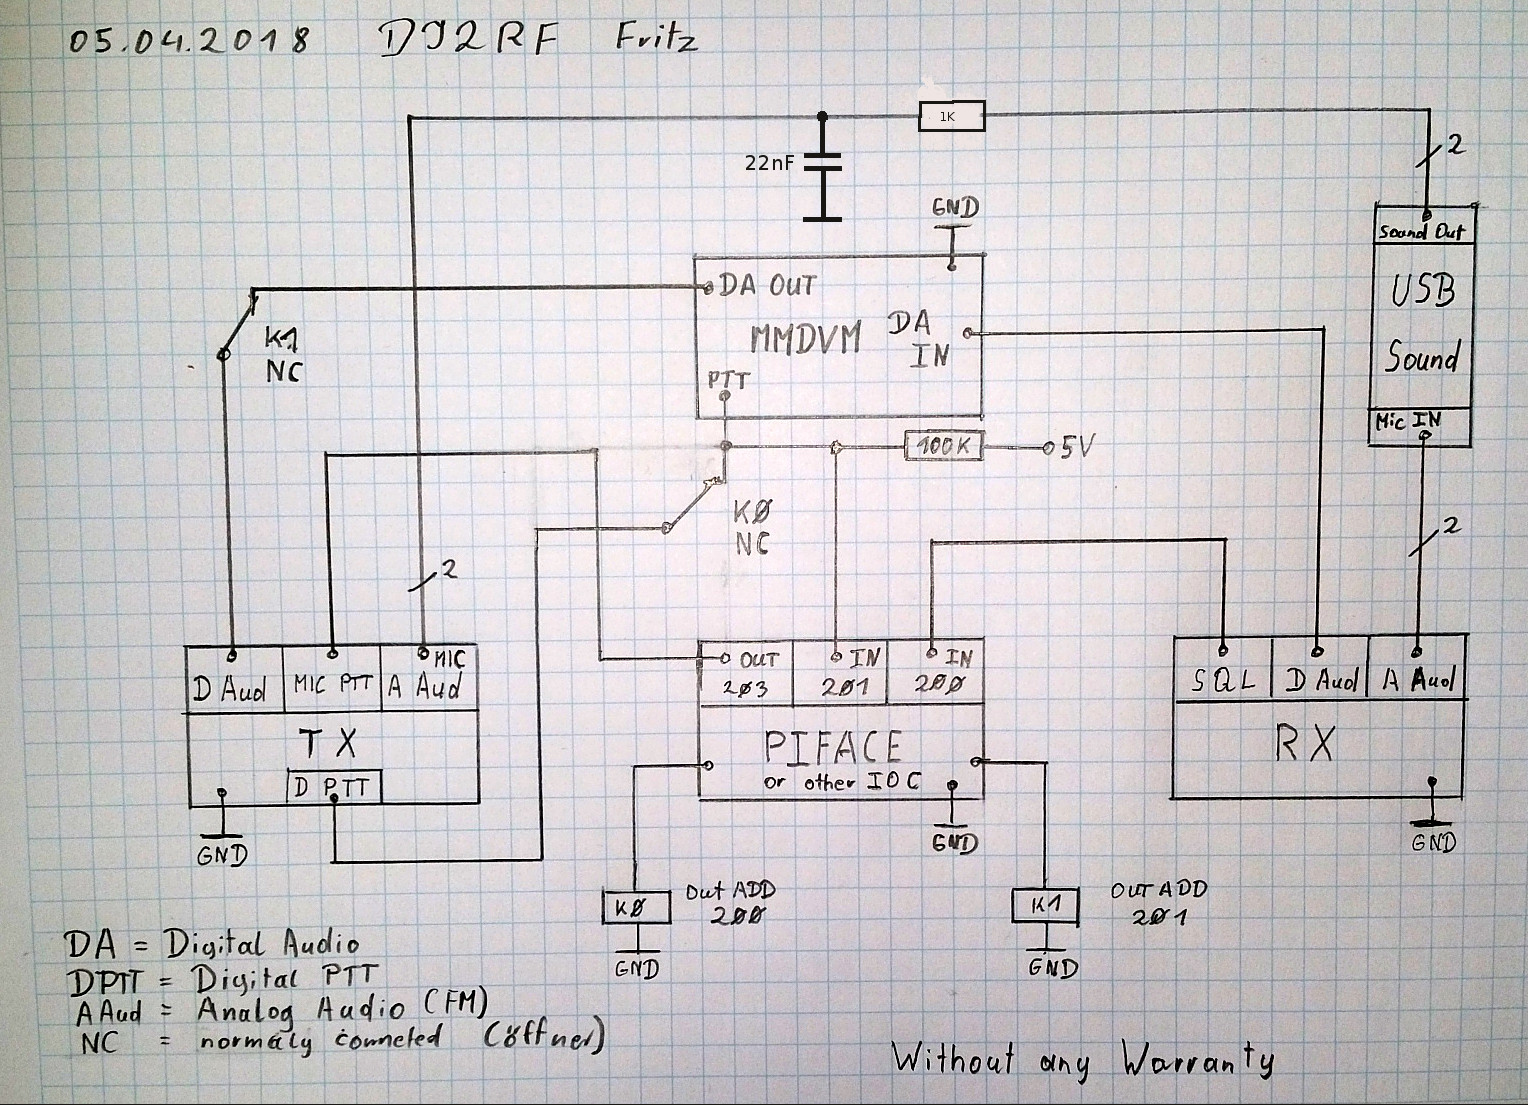 05.04.2018 DJ2RF Fritz
1K
22nF
2
GND
Sound Out
USB
Sound
Mic IN
DA OUT
MMDVM
DA
IN
PTT
K1
NC
100K
5V
KØ
NC
2
2
D Aud
MIC PTT
MIC
A Aud
TX
D PTT
GND
OUT
2Ø3
IN
2Ø1
IN
2ØØ
PIFACE
or other IOC
GND
SQL
D Aud
A Aud
RX
GND
KØ
Out ADD
2ØØ
GND
K1
OUT ADD
2Ø1
GND
DA = Digital Audio
DPTT = Digital PTT
AAud = Analog Audio (FM)
NC = normaly conneted (öffner)
Without any Warranty